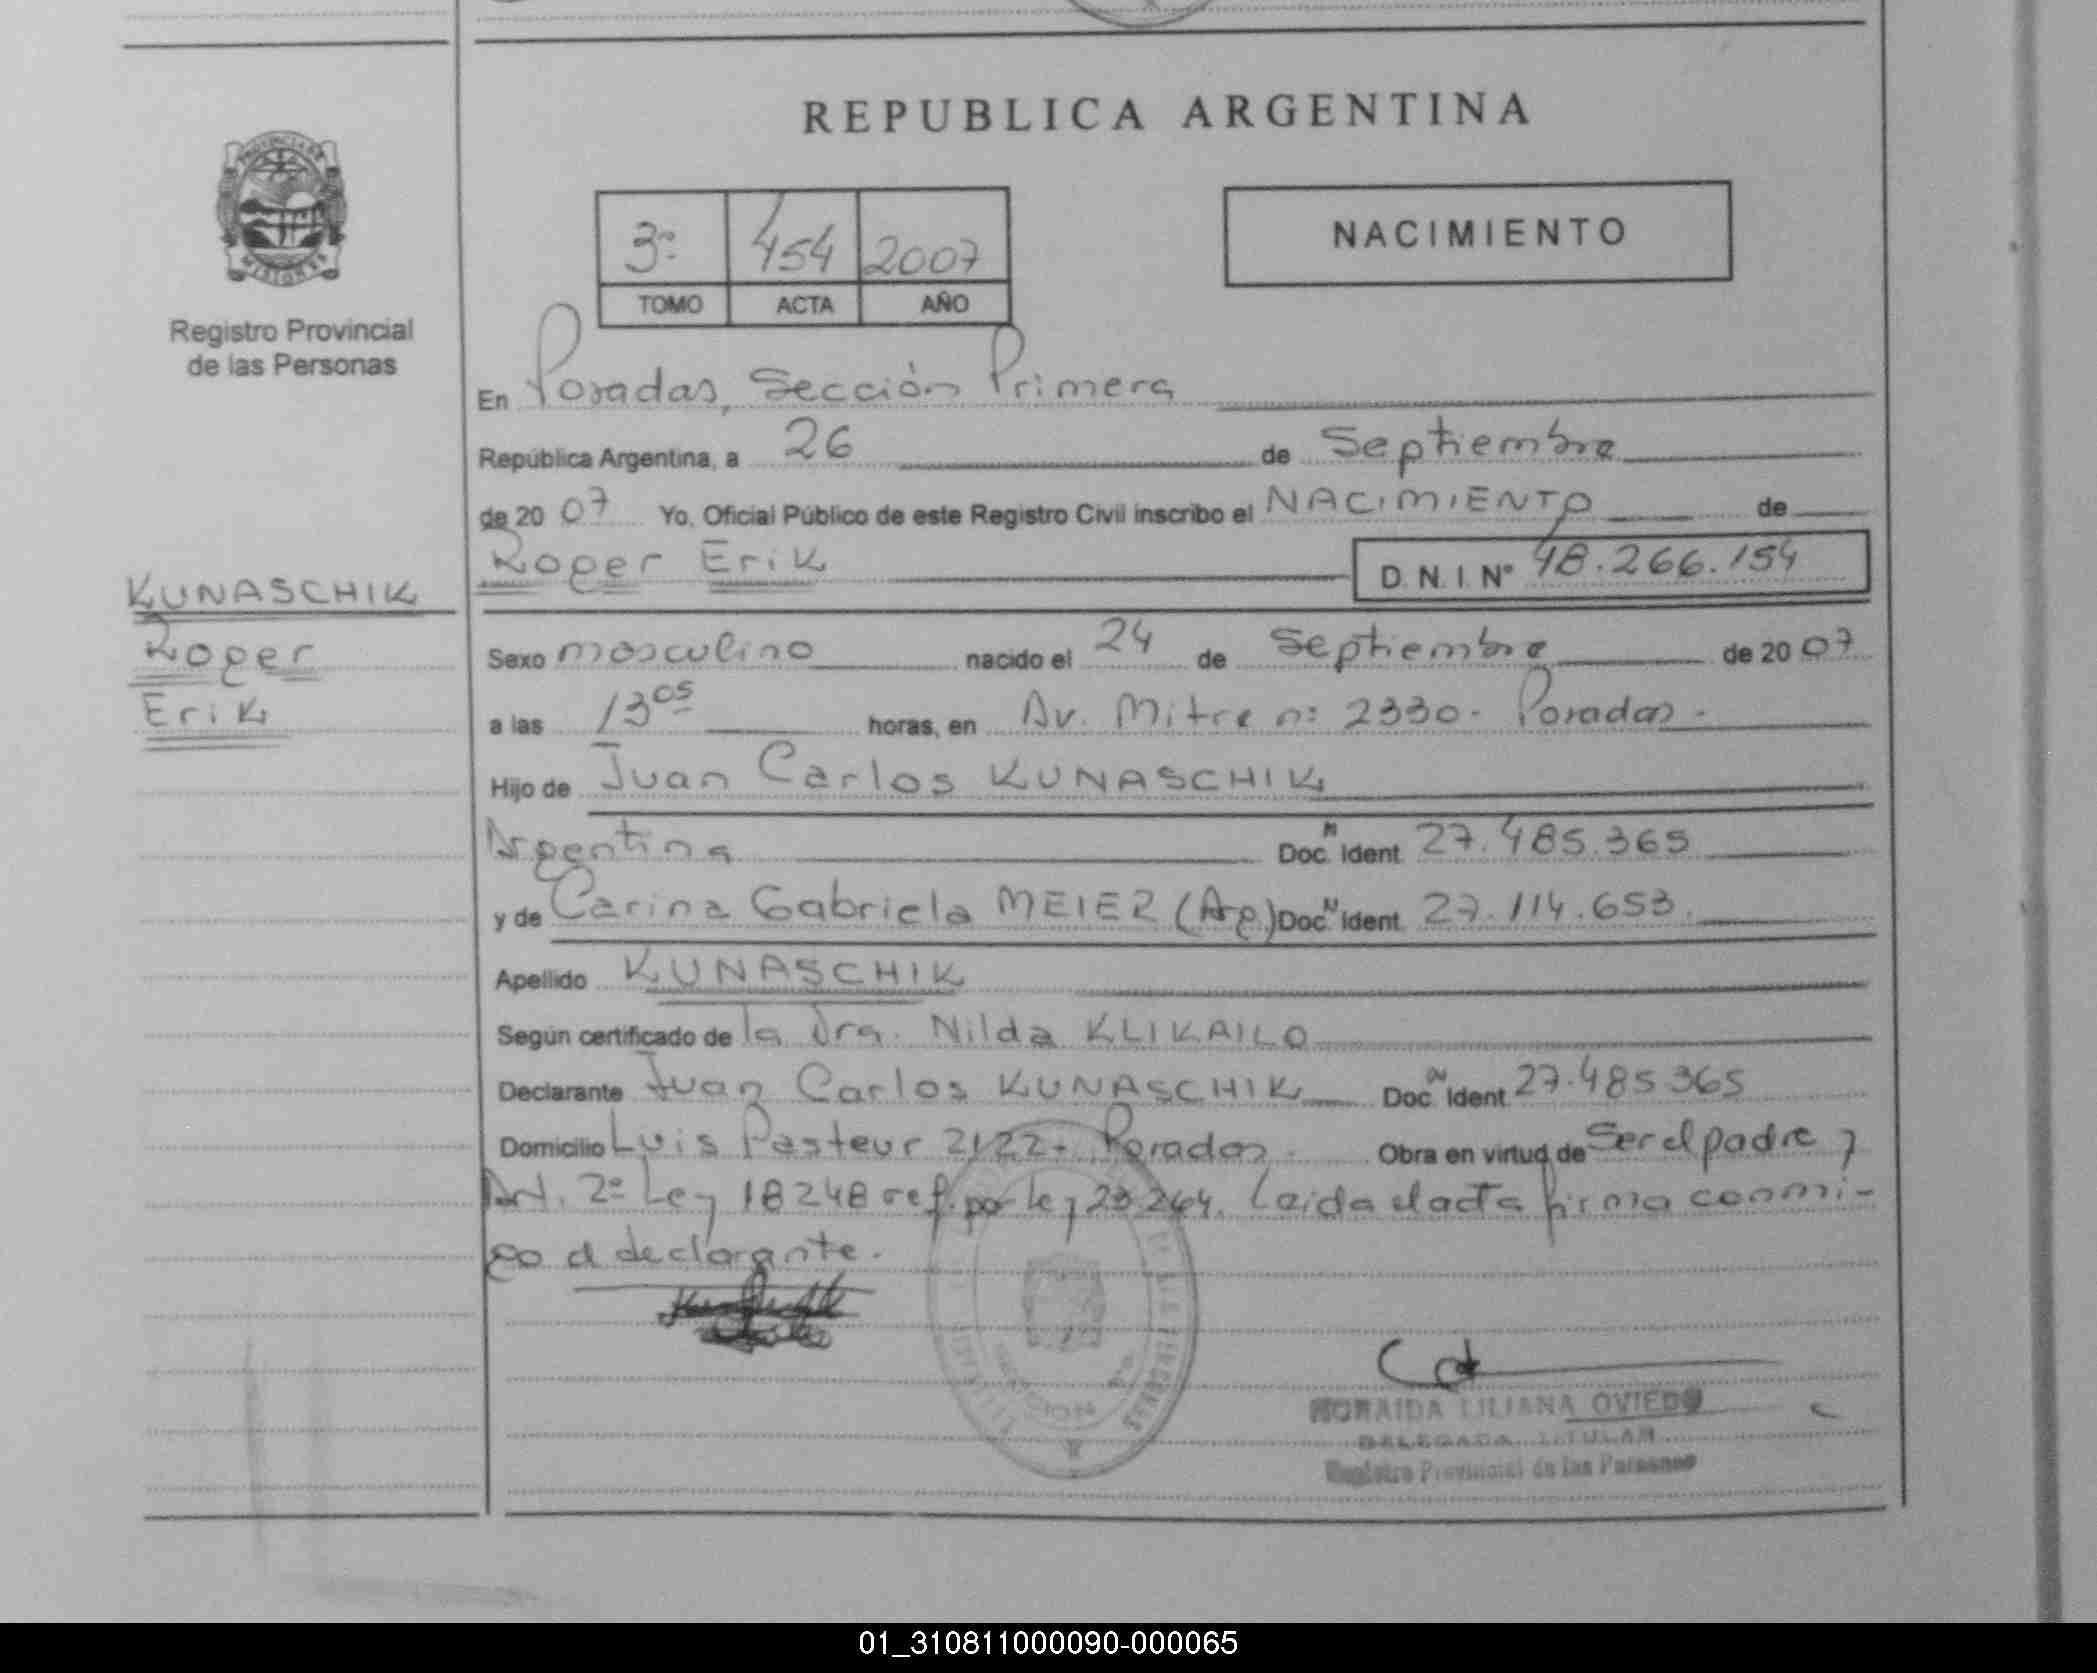 REPUBLICA ARGENTINA
PROVINCIA DE
MISIONES
Registro Provincial
de las Personas
3º 454 2007
TOMO ACTA AÑO
NACIMIENTO
En Posadas, Sección Primera
República Argentina, a 26 de Septiembre
de 20 07 Yo, Oficial Público de este Registro Civil inscribo el NACIMIENTO de
Roger Erik D.N.I. Nº 48.266.154
KUNASCHIK
Roger
Erik
Sexo masculino nacido el 24 de Septiembre de 20 07
a las 13 05 horas, en Av. Mitre nº 2330 - Posadas -
Hijo de Juan Carlos KUNASCHIK
Argentina Doc. Ident. 27.485.365
y de Carina Gabriela MEIER (Arg.) Doc. Ident. 27.114.653.
Apellido KUNASCHIK
Según certificado de la Dra. Nilda KLIKAILO
Declarante Juan Carlos KUNASCHIK Doc. Ident. 27.485.365
Domicilio Luis Pasteur 2122 - Posadas. Obra en virtud de Ser el padre y
Art. 2º Ley 18248 ref. por ley 23.264. Leída el acta firma conmi-
go el declarante.
NORAIDA LILIANA OVIEDO
DELEGADA TITULAR
Registro Provincial de las Personas
01_310811000090-000065